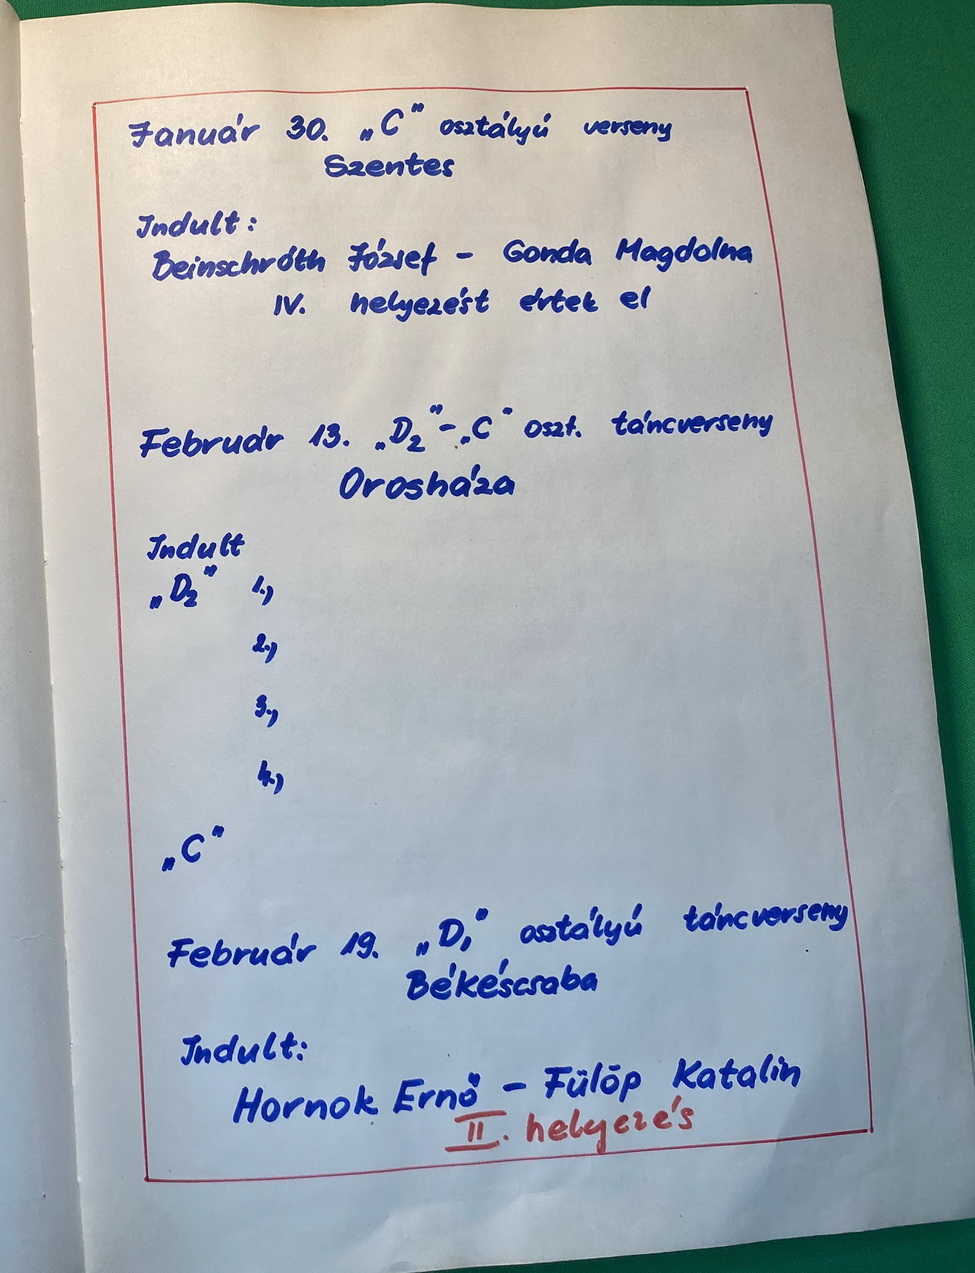 Január 30. „C" osztályú verseny
Szentes
Indult:
Beinschróth József - Gonda Magdolna
IV. helyezést értek el
Február 13. „D₂"-„C" oszt. táncverseny
Orosháza
Indult
„D₂" 1.,
2.,
3.,
4.,
„C"
Február 19. „D₁" osztályú táncverseny
Békéscsaba
Indult:
Hornok Ernő - Fülöp Katalin
II. helyezés